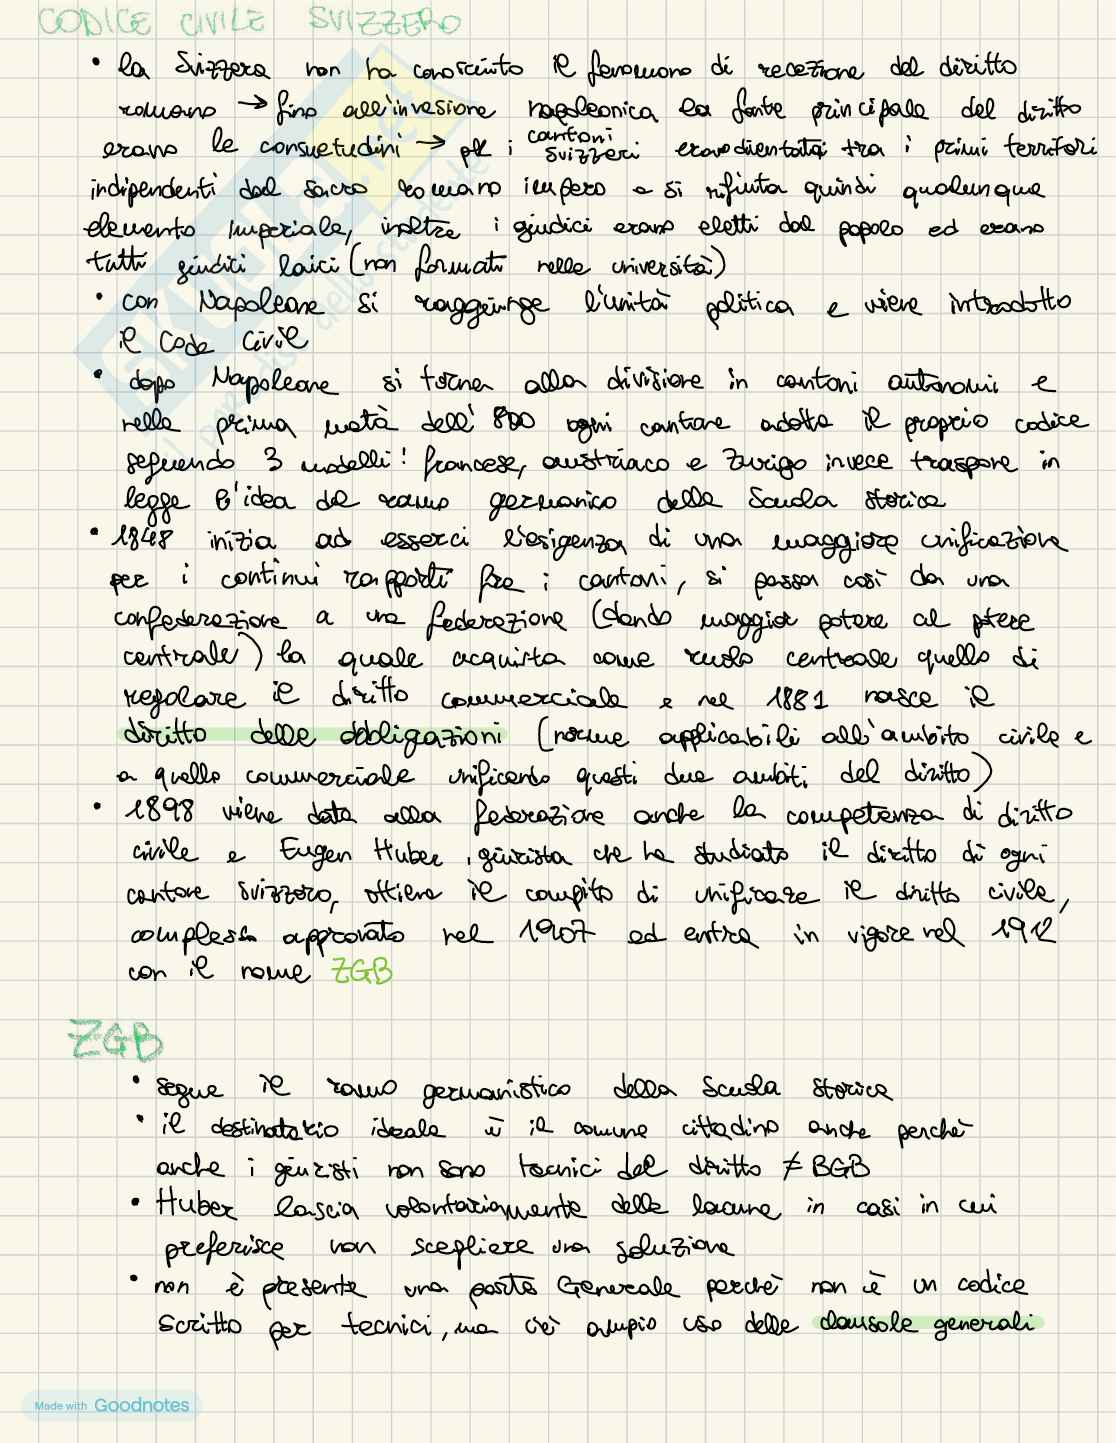 CODICE CIVILE SVIZZERO
• la Svizzera non ha conosciuto il fenomeno di recezione del diritto
romano → fino all'invasione napoleonica la fonte principale del diritto
erano le consuetudini → pk i cantoni svizzeri erano diventati tra i primi territori
indipendenti dal sacro romano impero e si rifiuta quindi qualunque
elemento imperiale, inoltre i giudici erano eletti dal popolo ed erano
tutti giudici laici (non formati nelle università)
• con Napoleone si raggiunge l'unità politica e viene introdotto
il Code Civil
• dopo Napoleone si torna alla divisione in cantoni autonomi e
nella prima metà dell' 800 ogni cantone adotta il proprio codice
seguendo 3 modelli: francese, austriaco e Zurigo invece traspone in
legge l'idea del ramo germanico della Scuola storica
• 1848 inizia ad esserci l'esigenza di una maggiore unificazione
per i continui rapporti fra i cantoni, si passa così da una
confederazione a una federazione (dando maggior potere al ptere
centrale) la quale acquista come ruolo centrale quello di
regolare il diritto commerciale e nel 1881 nasce il
diritto delle obbligazioni (norme applicabili all'ambito civile e
a quello commerciale unificando questi due ambiti del diritto)
• 1898 viene data alla federazione anche la competenza di diritto
civile e Eugen Huber, giurista che ha studiato il diritto di ogni
cantone svizzero, ottiene il compito di unificare il diritto civile,
complesso approvato nel 1907 ed entra in vigore nel 1912
con il nome ZGB
ZGB
• segue il ramo germanistico della Scuola storica
• il destinatario ideale è il comune cittadino anche perchè
anche i giuristi non sono tecnici del diritto ≠ BGB
• Huber lascia volontariamente delle lacune in casi in cui
preferisce non scegliere una soluzione
• non è presente una parte Generale perchè non è un codice
scritto per tecnici, ma c'è ampio uso delle clausole generali
Made with Goodnotes